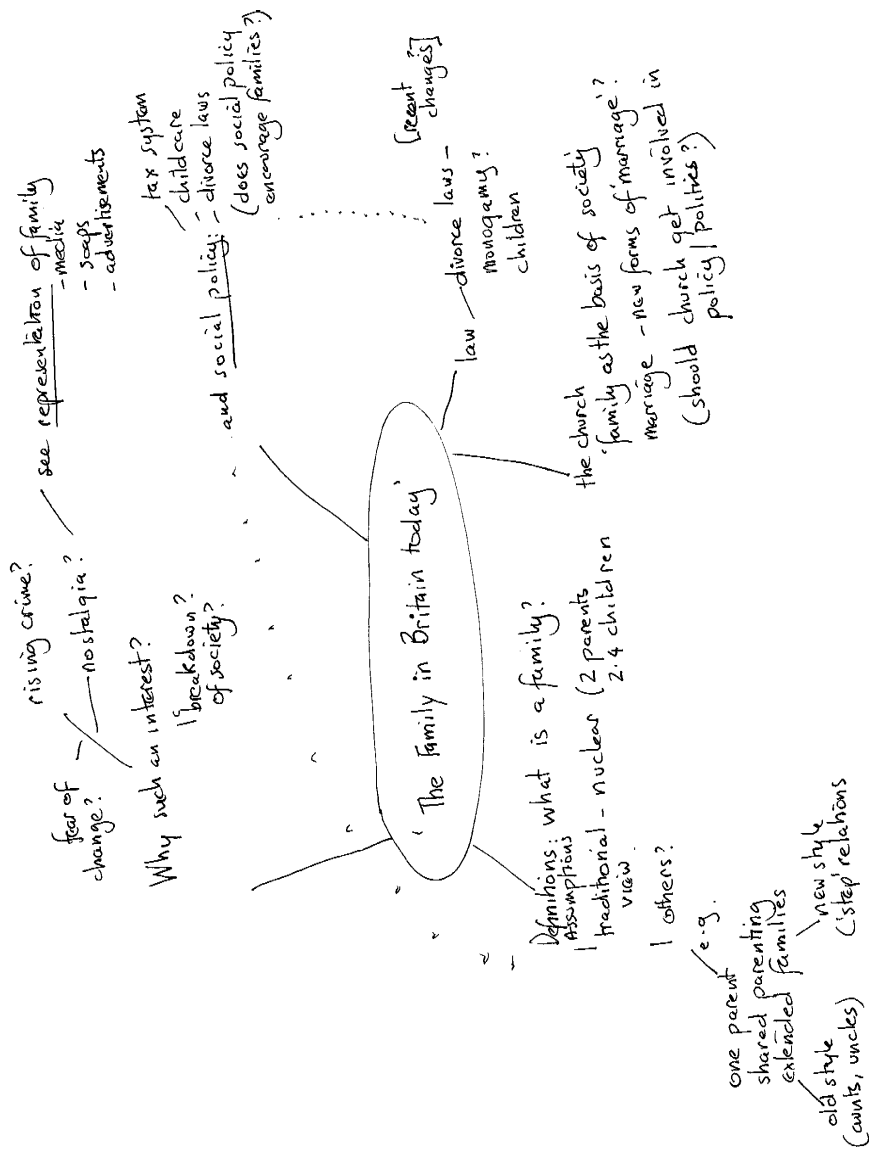 'The Family in Britain today'
Why such an interest?
fear of
change?
nostalgia?
rising crime?
breakdown?
of society?
see representation of family
- media
- soaps
- advertisements
and social policy:
tax system
childcare
- divorce laws
(does social policy
encourage families?)
law
divorce laws -
monogamy?
children
[recent
changes]
the church
'family as the basis of society'?
marriage - new forms of 'marriage'?
(should church get involved in
policy / politics?)
Definitions: what is a family?
Assumptions
traditional - nuclear (2 parents
view.
2.4 children
others?
e.g.
one parent
shared parenting
extended families
old style
(aunts, uncles)
new style
('step' relations